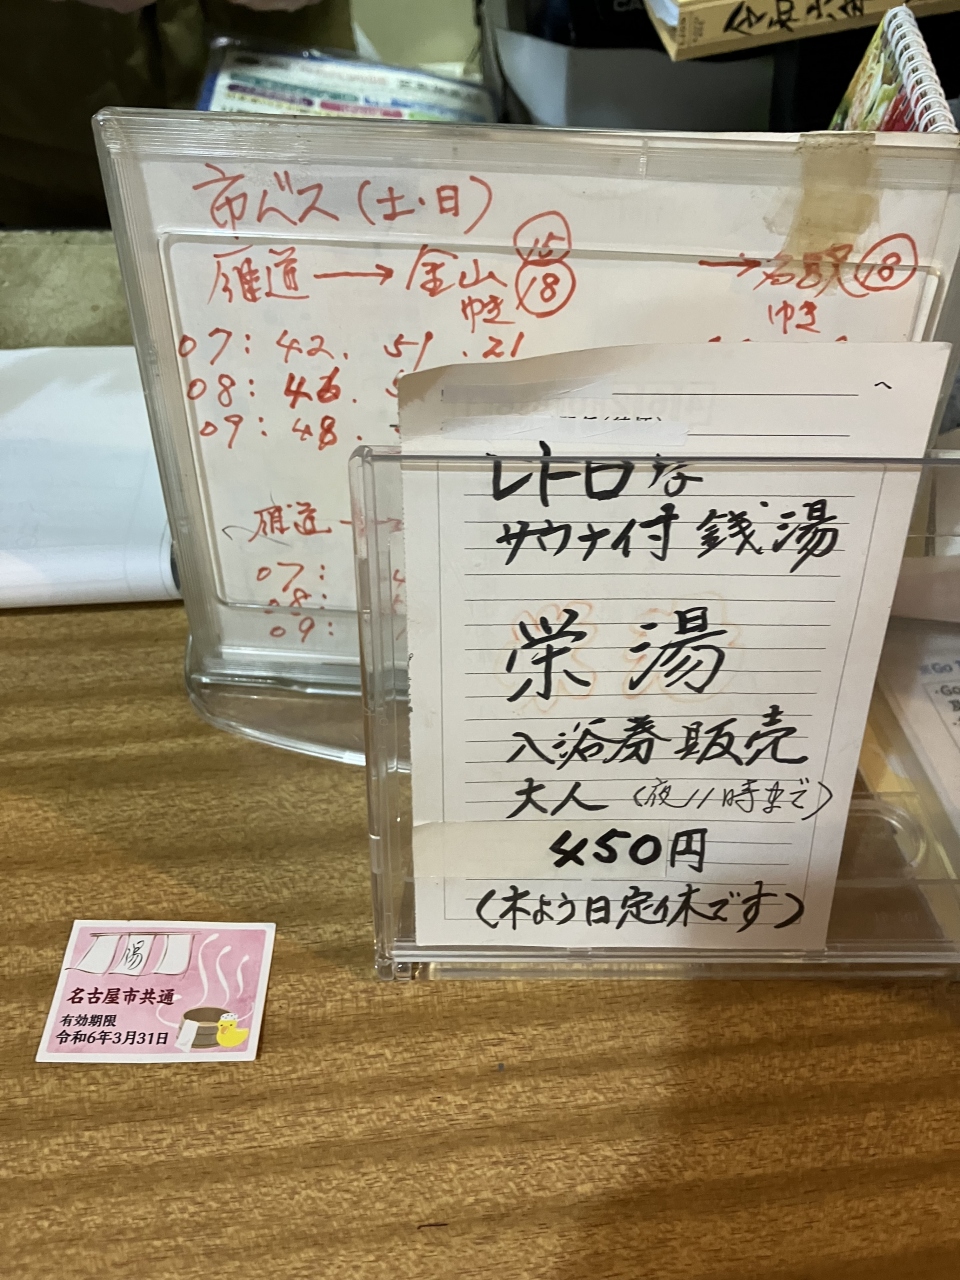 令和六年
市バス(土・日)
雁道→金山 15 18
ゆき
→名古屋駅 18
ゆき
07: 42. 51 .21
08: 46.
09: 48.
雁道→
07:
08:
09:
レトロな
サウナ付銭湯
栄湯
入浴券販売
大人(夜11時まで)
450円
(木よう日定休です)
湯
名古屋市共通
有効期限
令和6年3月31日